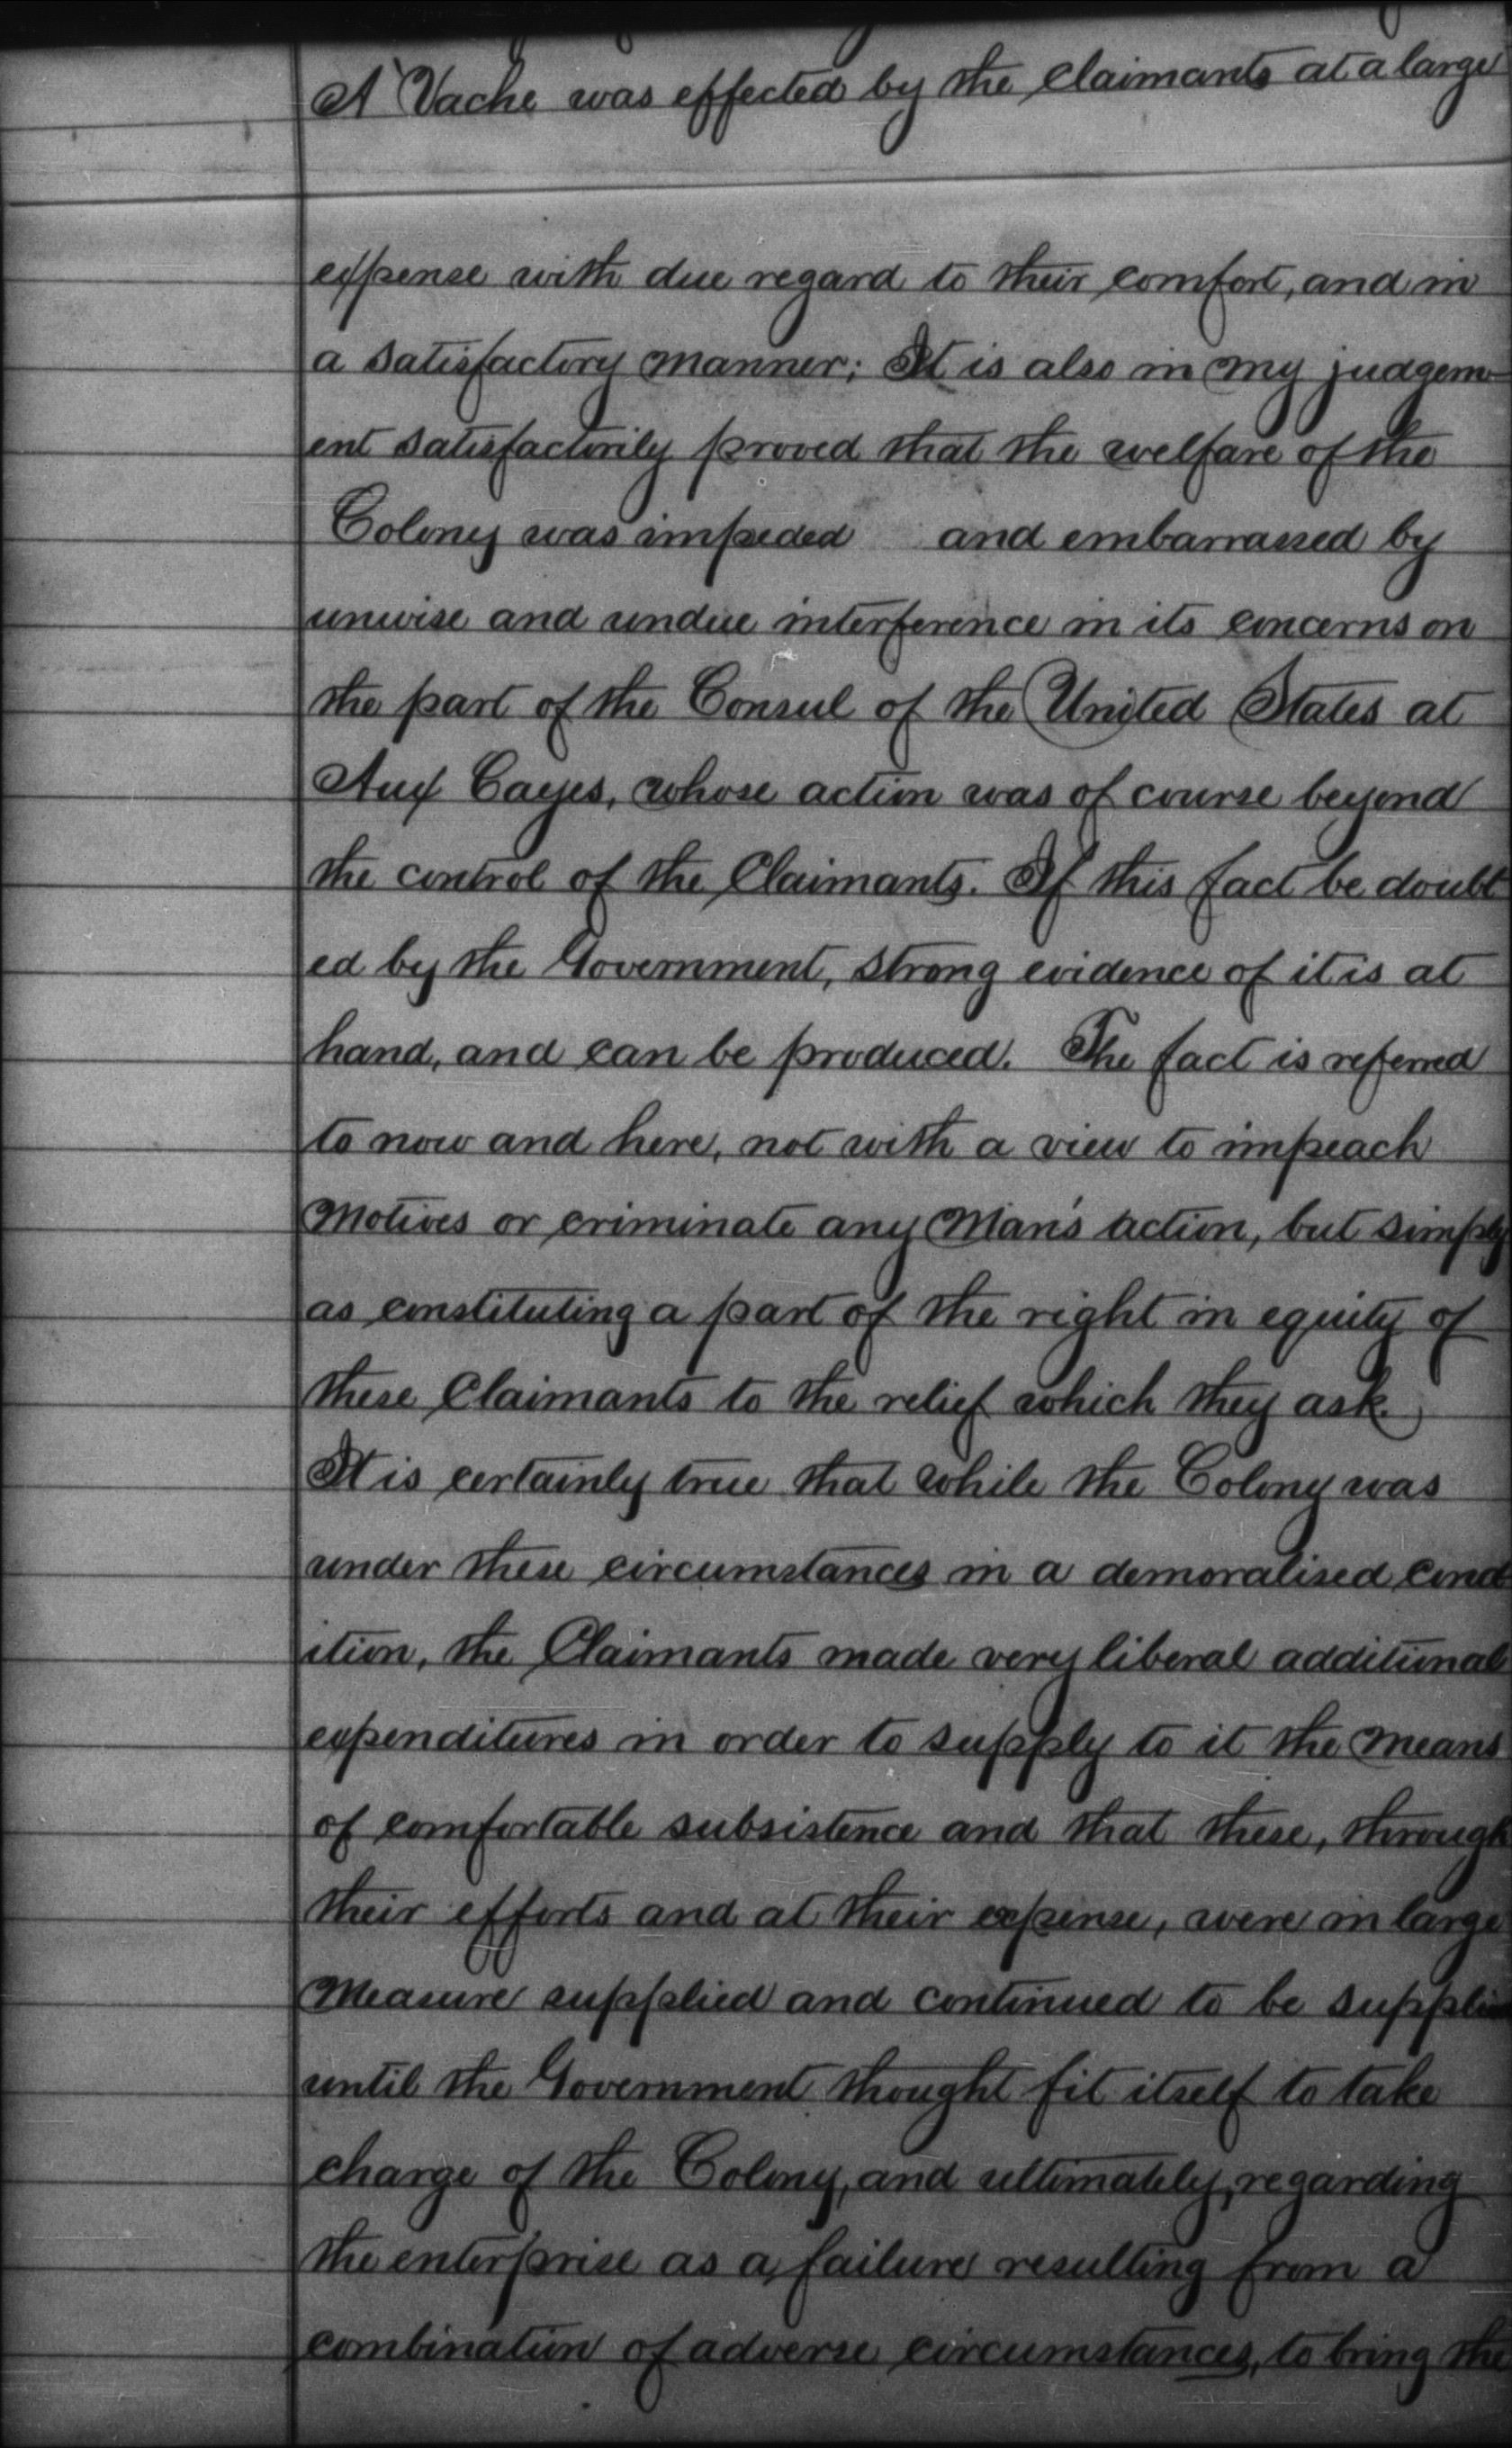 A'Vache was effected by the Claimants at a large
expense with due regard to their comfort, and in
a satisfactory manner; It is also in my judgem-
ent satisfactorily proved that the welfare of the
Colony was impeded and embarrassed by
unwise and undue interference in its concerns on
the part of the Consul of the United States at
Aux Cayes, whose action was of course beyond
the control of the Claimants. If this fact be doubt
ed by the Government, strong evidence of it is at
hand, and can be produced. The fact is referred
to now and here, not with a view to impeach
Motives or criminate any Man's action, but simply
as constituting a part of the right in equity of
these Claimants to the relief which they ask.
It is certainly true that while the Colony was
under these circumstances in a demoralised cond-
ition, the Claimants made very liberal additional
expenditures in order to supply to it the Means
of comfortable subsistence and that these, through
their efforts and at their expense, were in large
Measure supplied and continued to be supplied
until the Government thought fit itself to take
charge of the Colony, and ultimately, regarding
the enterprise as a failure resulting from a
combination of adverse circumstances, to bring the